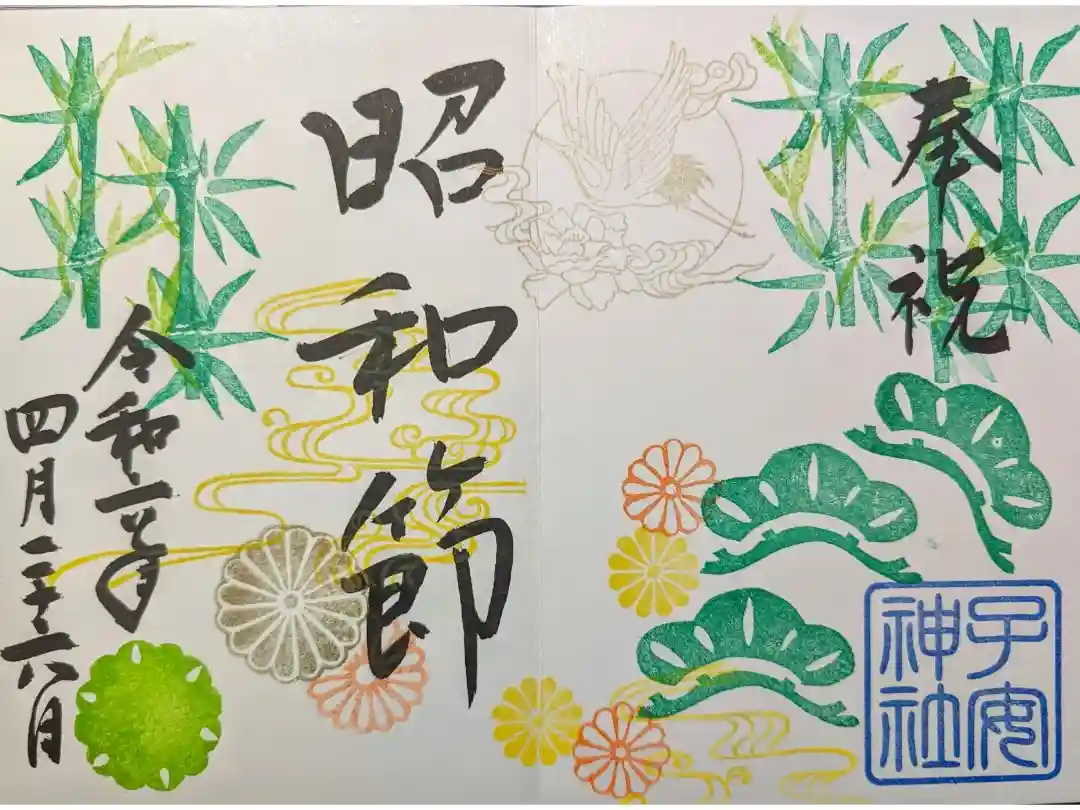 奉祝
昭和節
令和年
四月二十六日
子安
神社